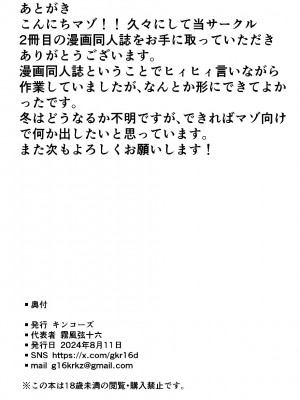 あとがき
こんにちマゾ！！久々にして当サークル
2冊目の漫画同人誌をお手に取っていただき
ありがとうございます。
漫画同人誌ということでヒィヒィ言いながら
作業していましたが、なんとか形にできてよか
ったです。
冬はどうなるか不明ですが、できればマゾ向け
で何か出したいと思っています。
また次もよろしくお願いします！
▪奥付
▪発行 キンコーズ
▪代表者 霧風弦十六
▪発行日 2024年8月11日
▪SNS https://x.com/gkr16d
▪mail g16krkz@gmail.com
※この本は18歳未満の閲覧・購入禁止です。